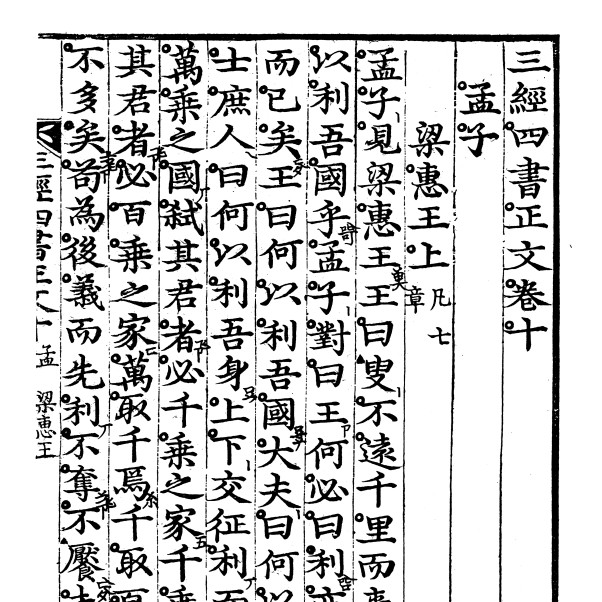 三經四書正文卷十
孟子
梁惠王上 凡七章
孟子見梁惠王王曰叟不遠千里而
以利吾國乎孟子對曰王何必曰利亦
而已矣王曰何以利吾國大夫曰何以
士庶人曰何以利吾身上下交征利而
萬乘之國弑其君者必千乘之家千乘
其君者必百乘之家萬取千焉千取百
不多矣苟為後義而先利不奪不饜
三經四書正文十 孟 梁惠王